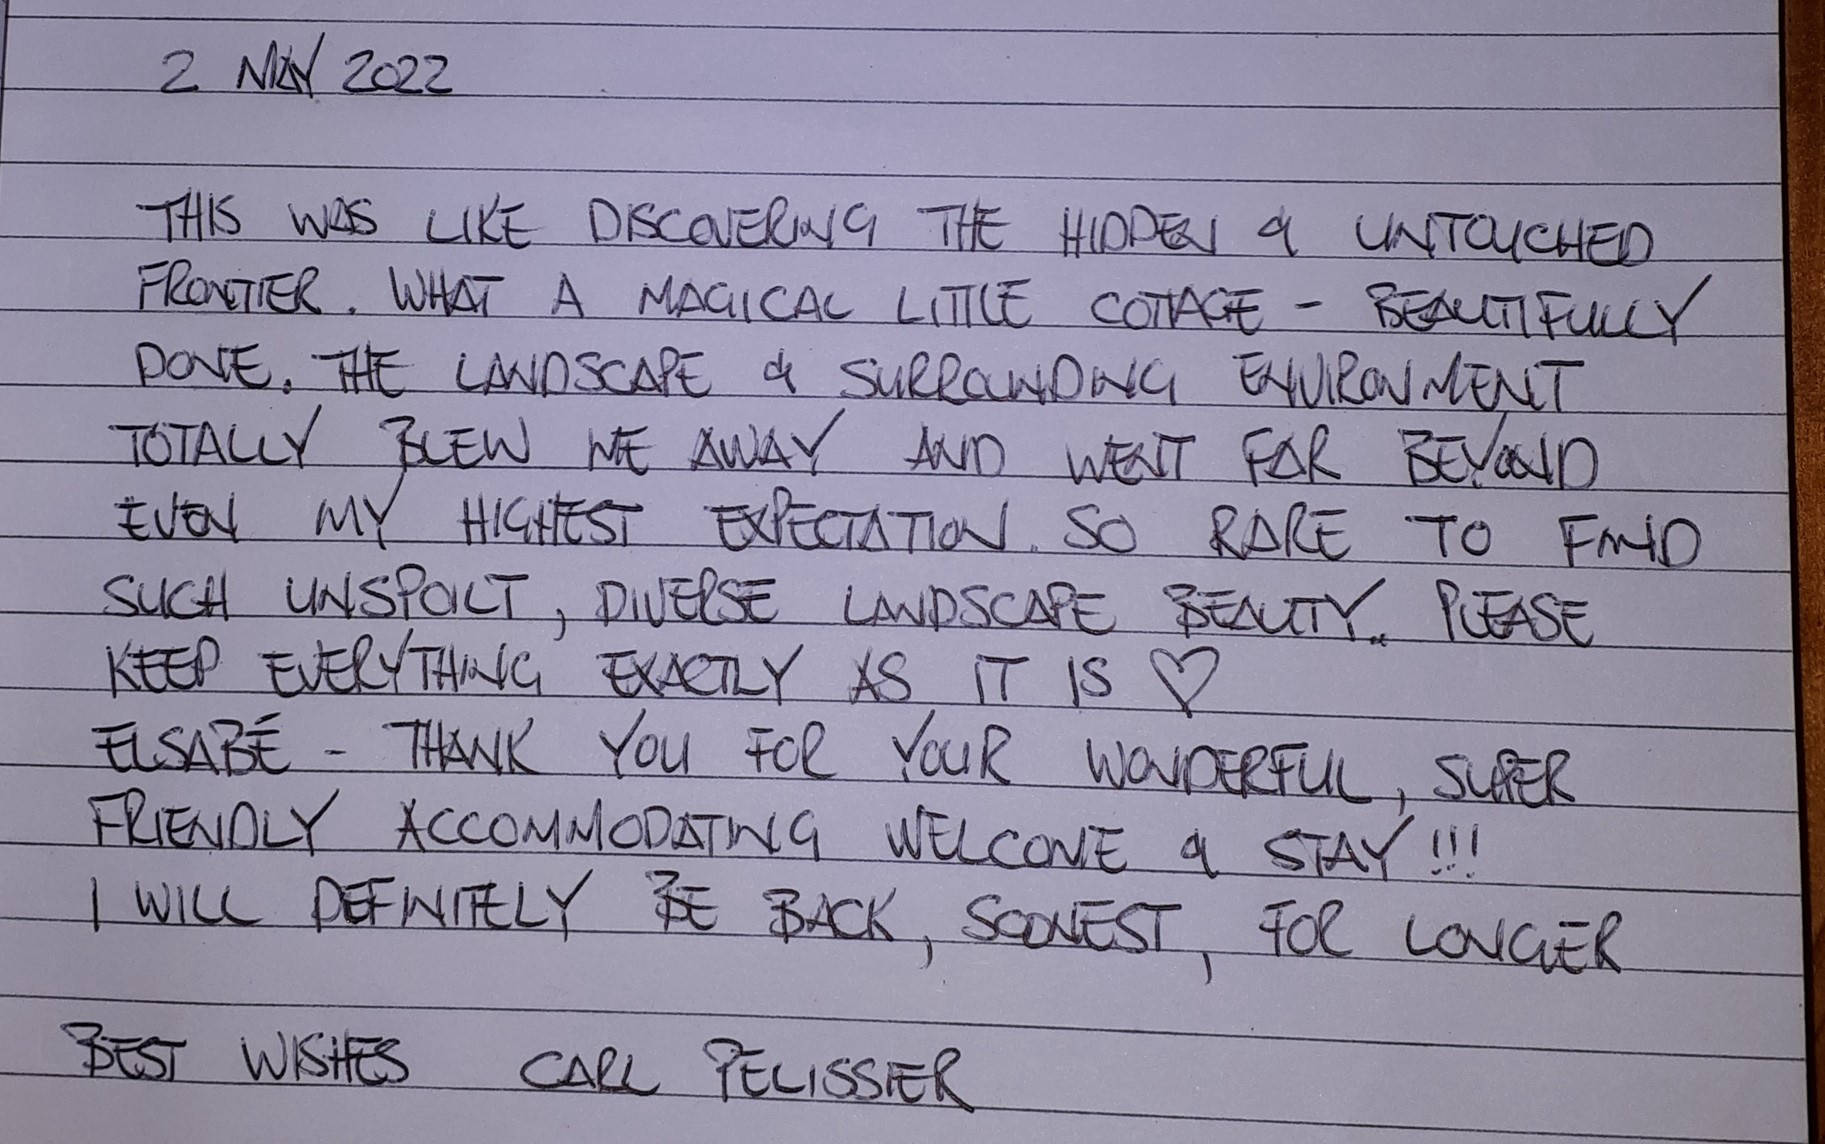 2 MAY 2022
THIS WAS LIKE DISCOVERING THE HIDDEN & UNTOUCHED
FRONTIER. WHAT A MAGICAL LITTLE COTTAGE - BEAUTIFULLY
DONE. THE LANDSCAPE & SURROUNDING ENVIRONMENT
TOTALLY BLEW ME AWAY AND WENT FAR BEYOND
EVEN MY HIGHEST EXPECTATION. SO RARE TO FIND
SUCH UNSPOILT, DIVERSE LANDSCAPE BEAUTY.. PLEASE
KEEP EVERYTHING EXACTLY AS IT IS ♡
ELSABÉ - THANK YOU FOR YOUR WONDERFUL, SUPER
FRIENDLY ACCOMMODATING WELCOME & STAY!!!
I WILL DEFINITELY BE BACK, SOONEST, FOR LONGER
BEST WISHES CARL PELISSIER